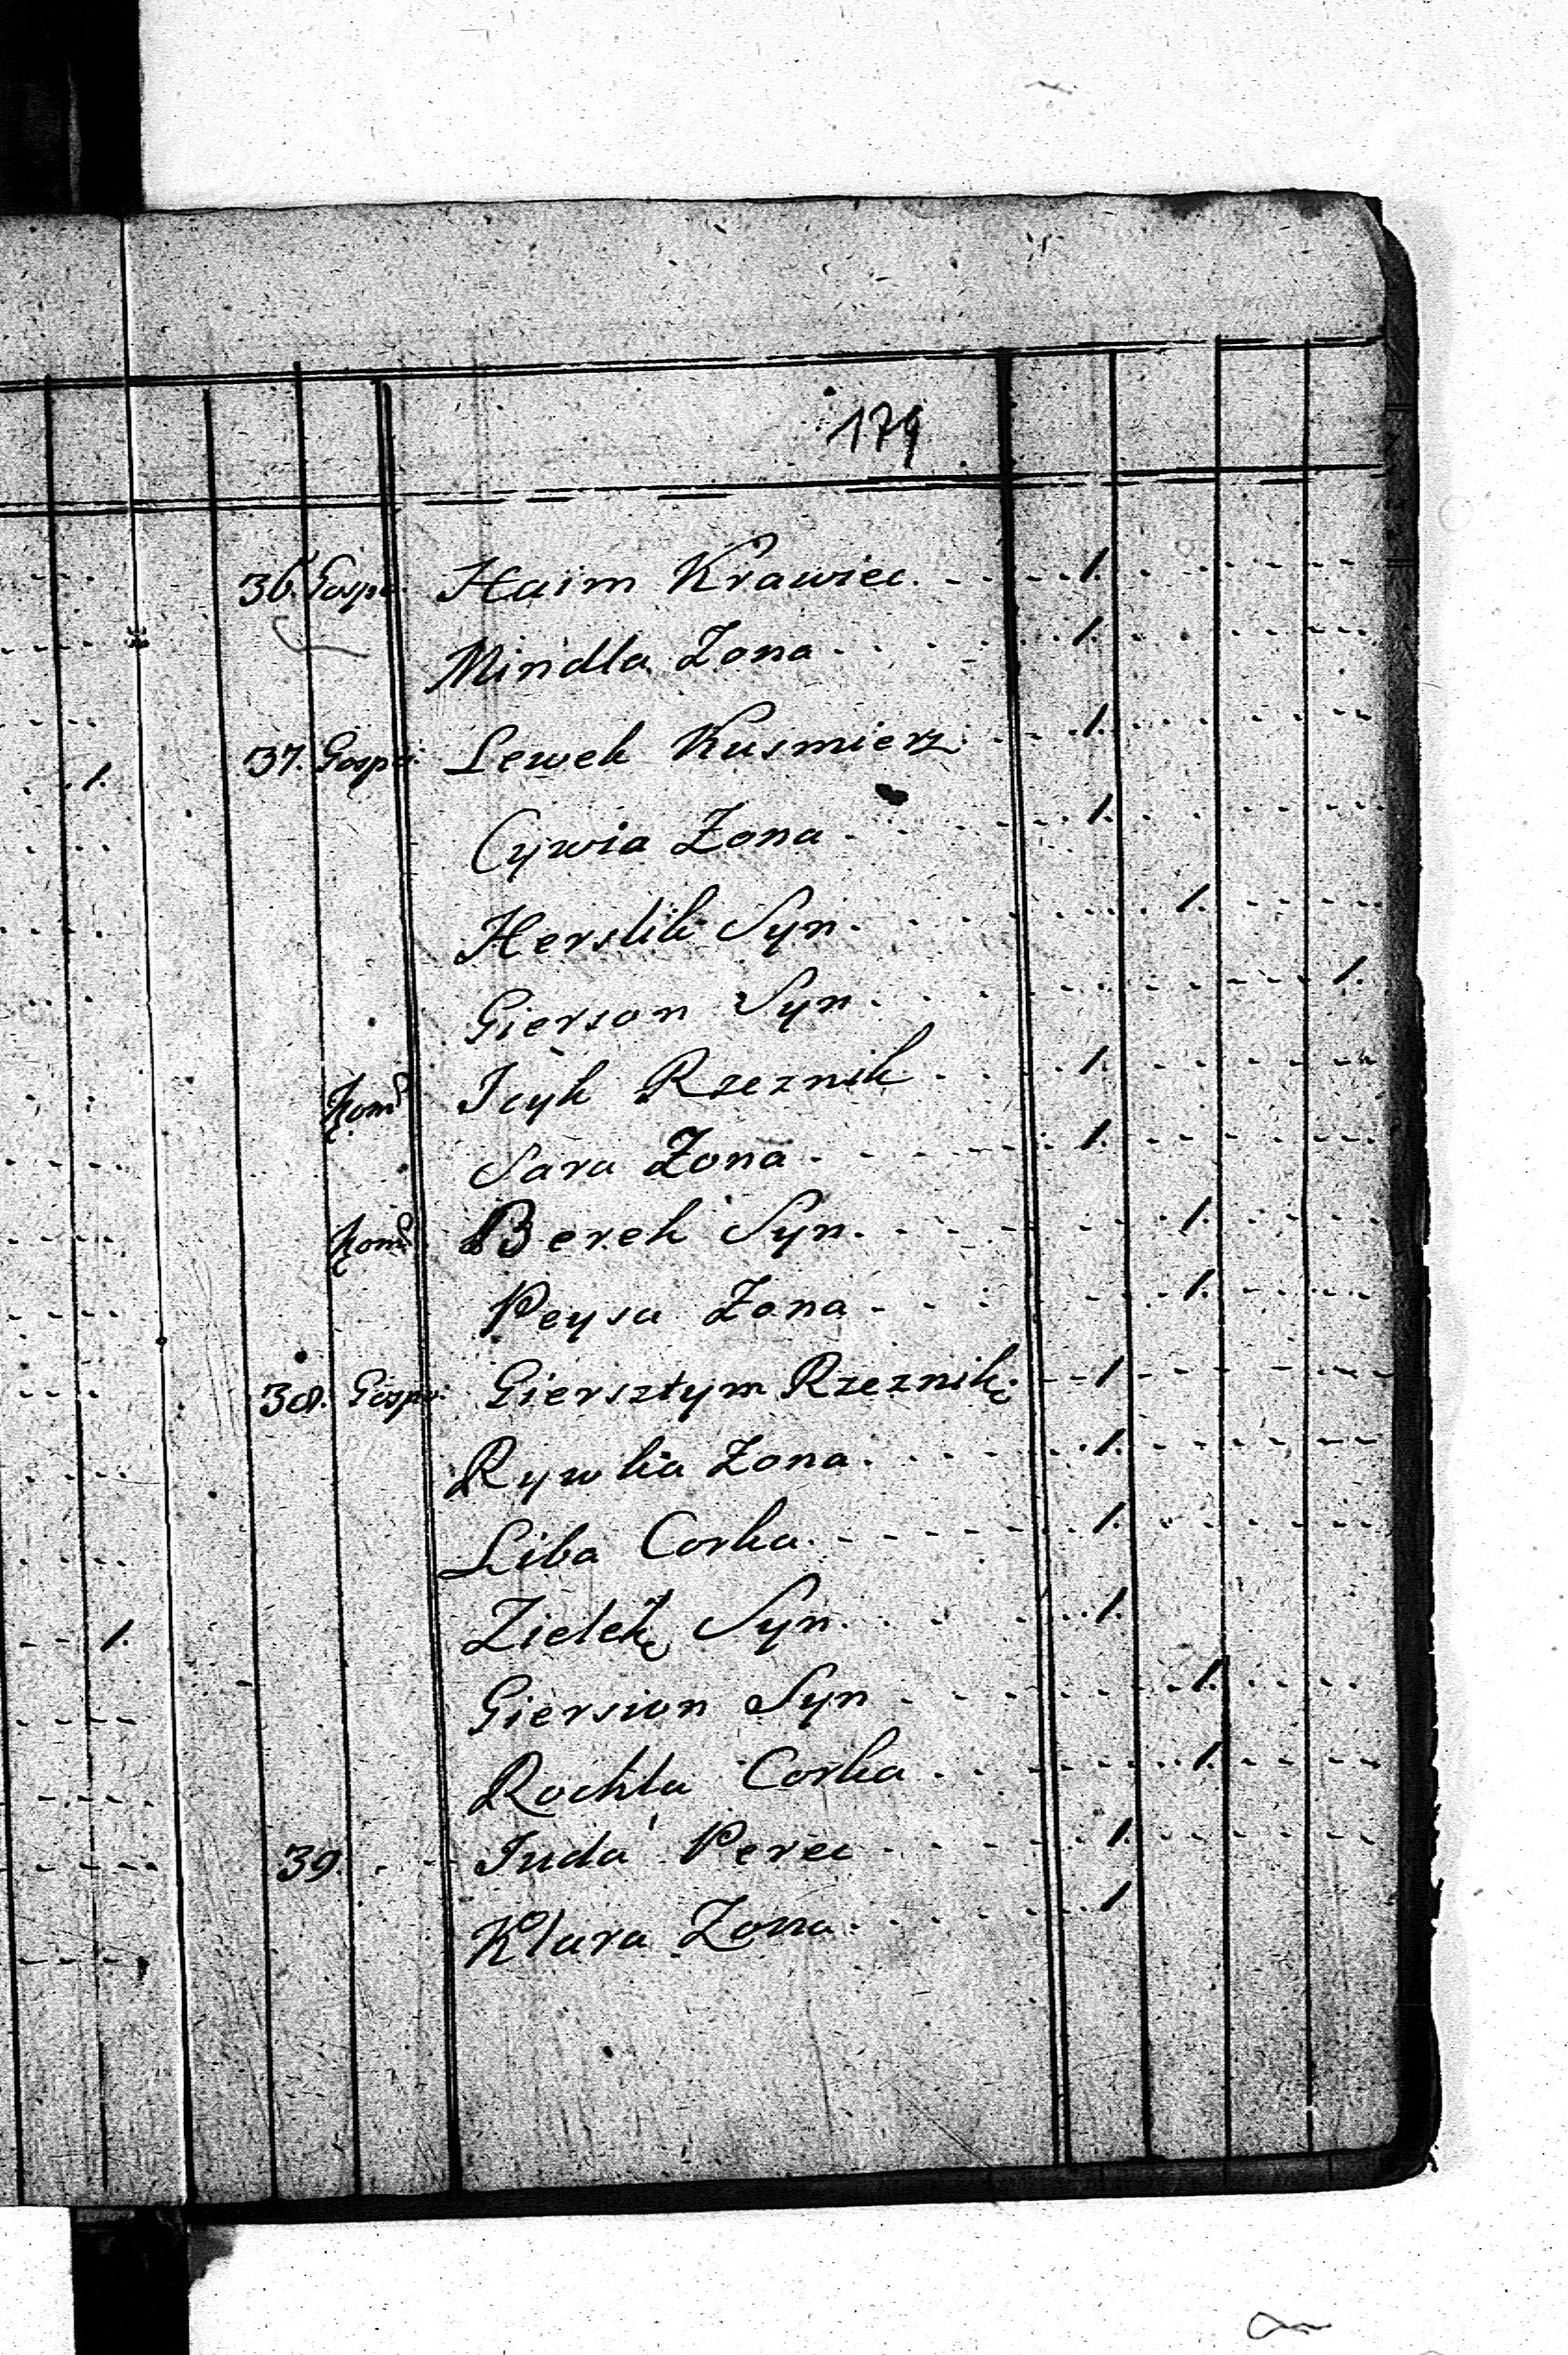 179
36. Gosp: Haim Krawiec. 1.
Mindla Zona 1.
37. Gosp: Lewek Kusmierz 1.
Cywia Zona 1.
Herslik Syn. 1.
Gierson Syn. 1.
Kom: Icyk Rzeznik 1.
Sara Zona 1.
Kom: Berek Syn. 1.
Peysa Zona 1.
38. Gosp: Giersztym Rzeznik 1
Rywka Zona 1.
Liba Corka 1.
Zielek Syn. 1.
Giersion Syn 1.
Rochla Corka 1.
39. Juda Perec 1.
Klara Zona 1
1.
1.